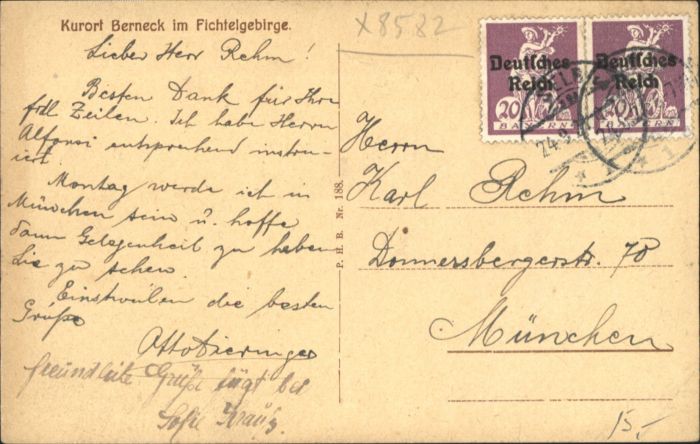 Kurort Berneck im Fichtelgebirge.
Lieber Herr Rehm!
Besten Dank für Ihre
frdl Zeilen. Ich habe Herrn
Alfonsi entsprechend instru-
iert.
Montag werde ich in
München sein u. hoffe
dann Gelegenheit zu haben
Sie zu sehen.
Einstweilen die besten
Grüße
Otto Dieringer
freundliche Grüße fügt bei
Sofie
P. H. B. Nr. 188.
X8582
Deutsches
Reich
20 20
BAYERN
Deutsches
Reich
20
BAYERN
Herrn
Karl Rehm
Donnersbergerstr. 70
München
15,-